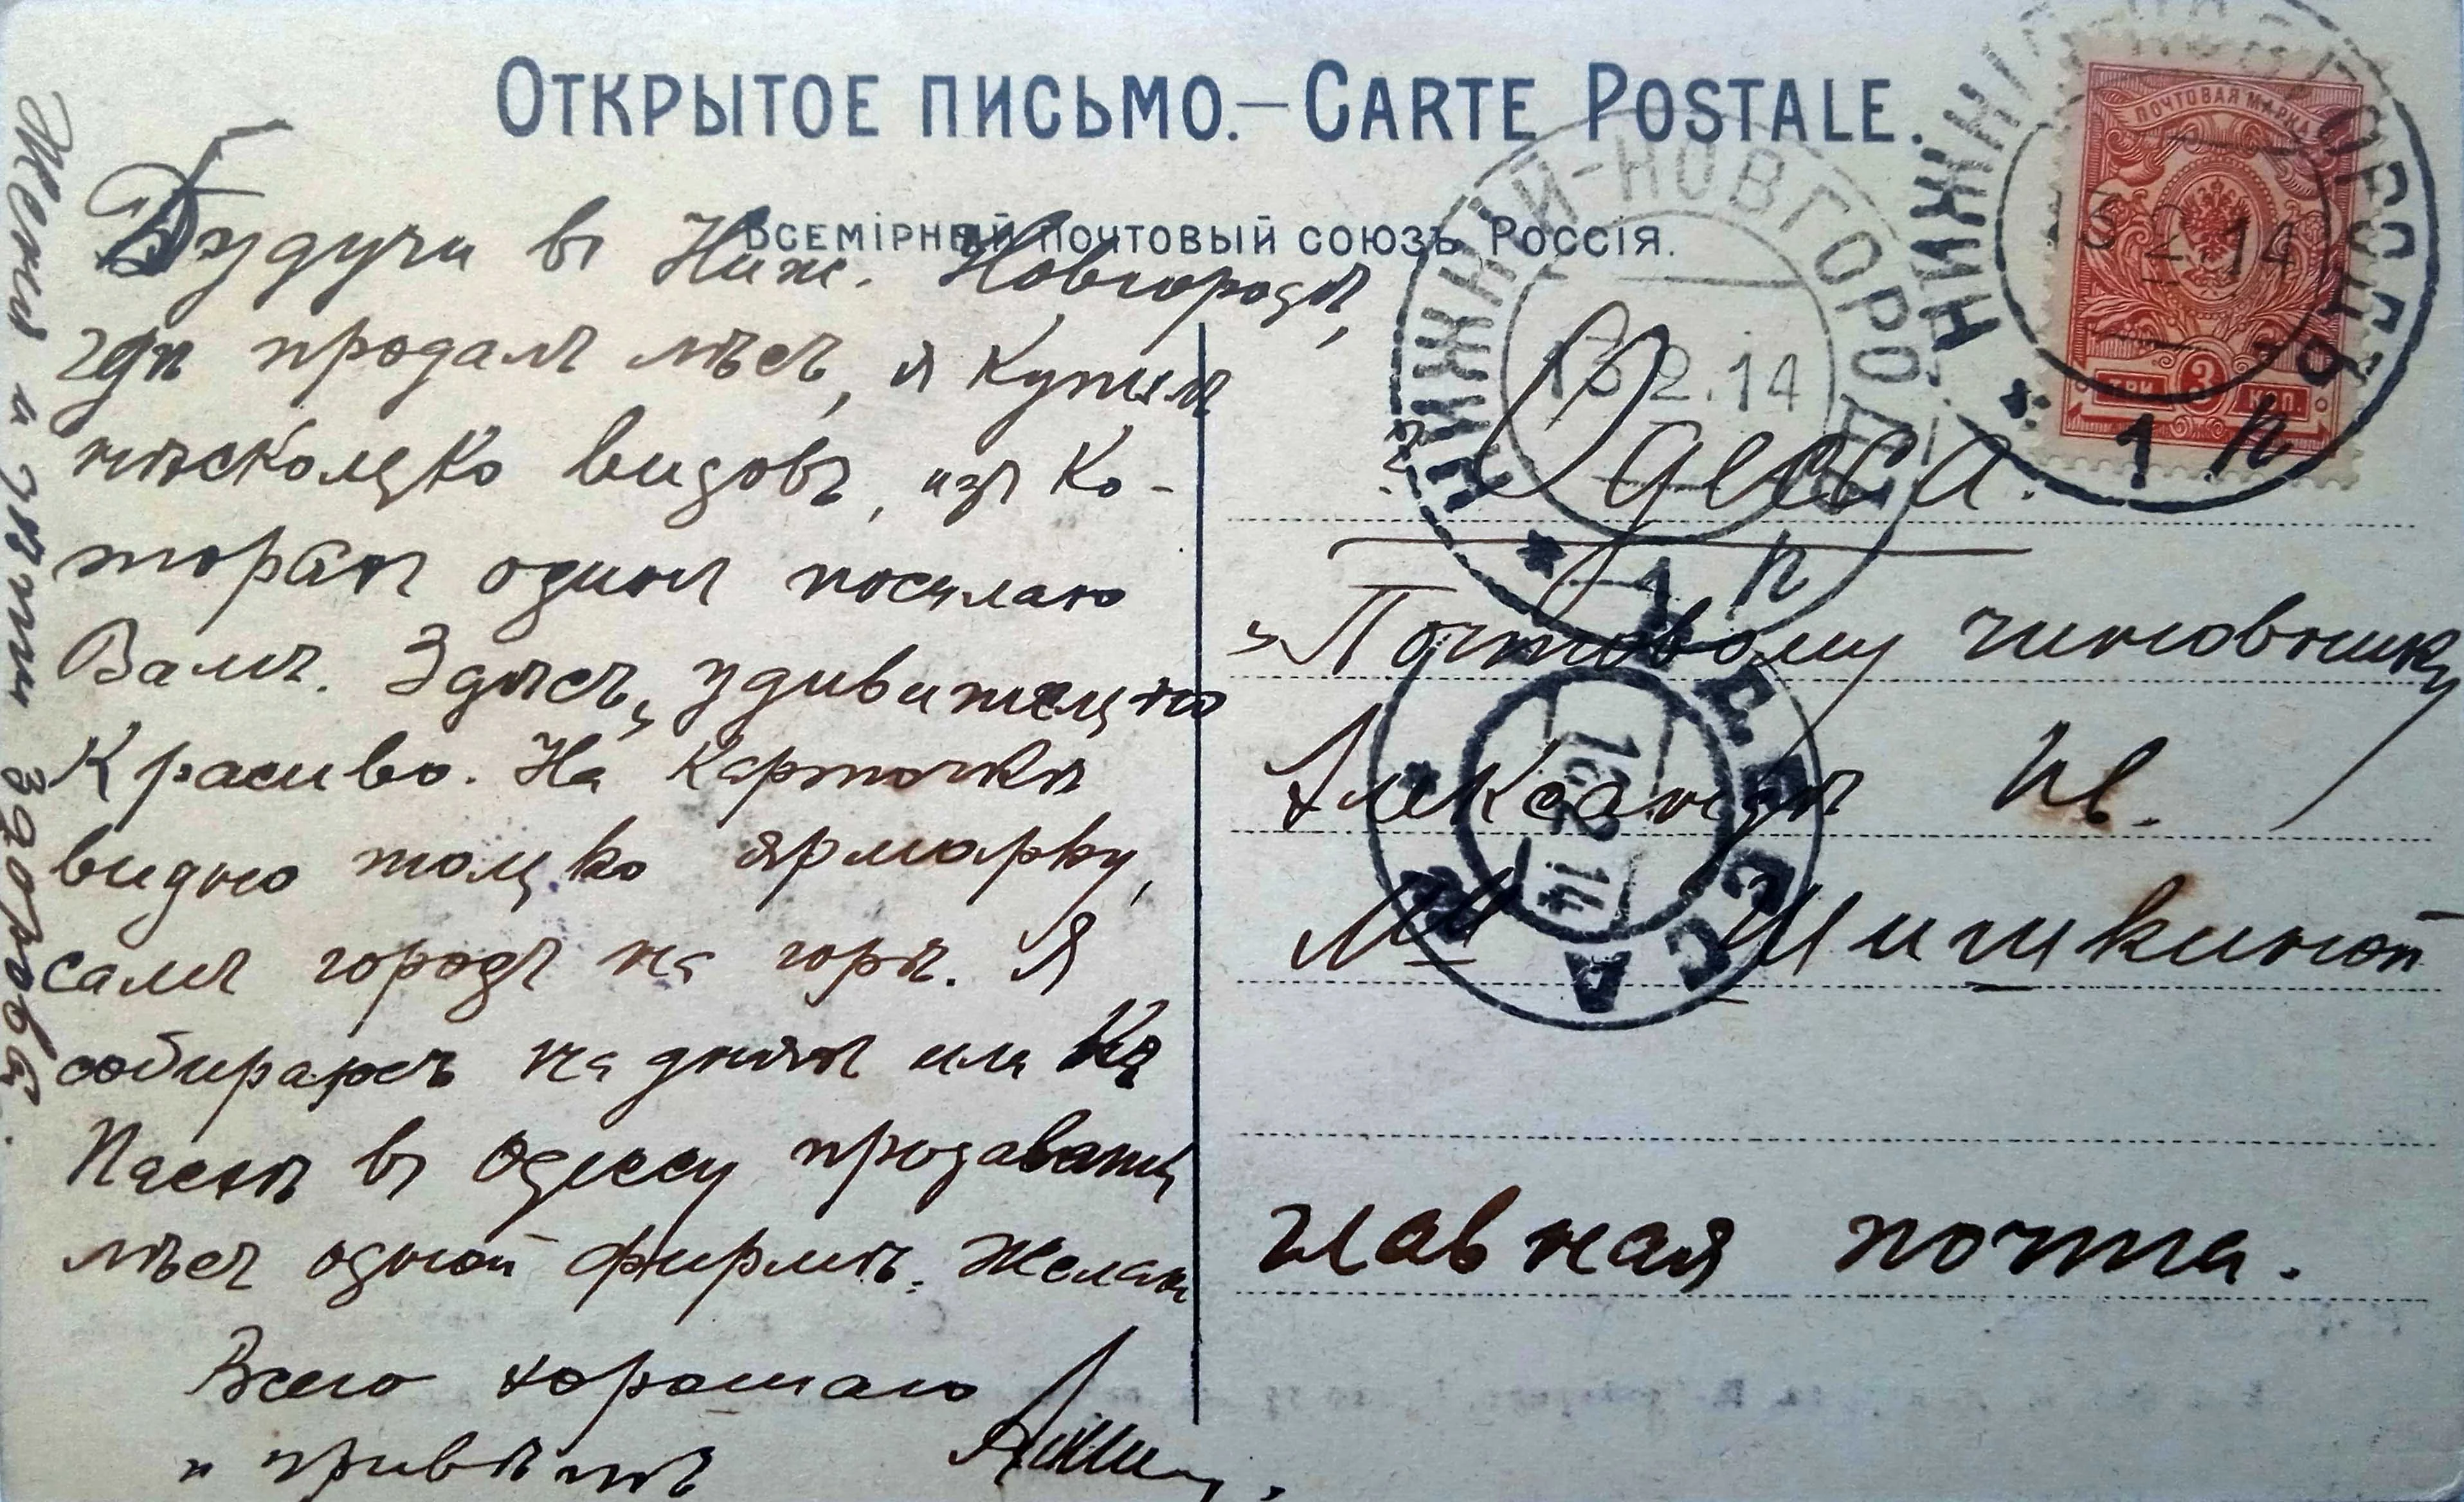 ОТКРЫТОЕ ПИСЬМО.—CARTE POSTALE.
ВСЕМІРНЫЙ ПОЧТОВЫЙ СОЮЗЪ РОССІЯ.
Будучи въ Ниж. Новгородѣ,
гдѣ продалъ лѣсъ, я купилъ
нѣсколько видовъ, изъ ко-
торыхъ одинъ посылаю
Вамъ. Здѣсь, удивительно
красиво. На карточкѣ
видно только ярмарку,
самъ городъ на горѣ. Я
собираюсь на дняхъ или на
Пасхѣ въ Одессу продавать
лѣсъ одной фирмѣ. Желаю
Всего хорошаго
и привѣтъ
Женя и дѣти здоровы.
ПОЧТОВАЯ МАРКА
ТРИ 3 КОП.
НИЖНІЙ-НОВГОРОДЪ
13 2 14
* 1 п
НИЖНІЙ-НОВГОРОДЪ
13.2.14
* 1 п
Одесса.
Почтовому чиновнику
Александр Ив.
Шишкиной
ОДЕССА
16 2 14
главная почта.